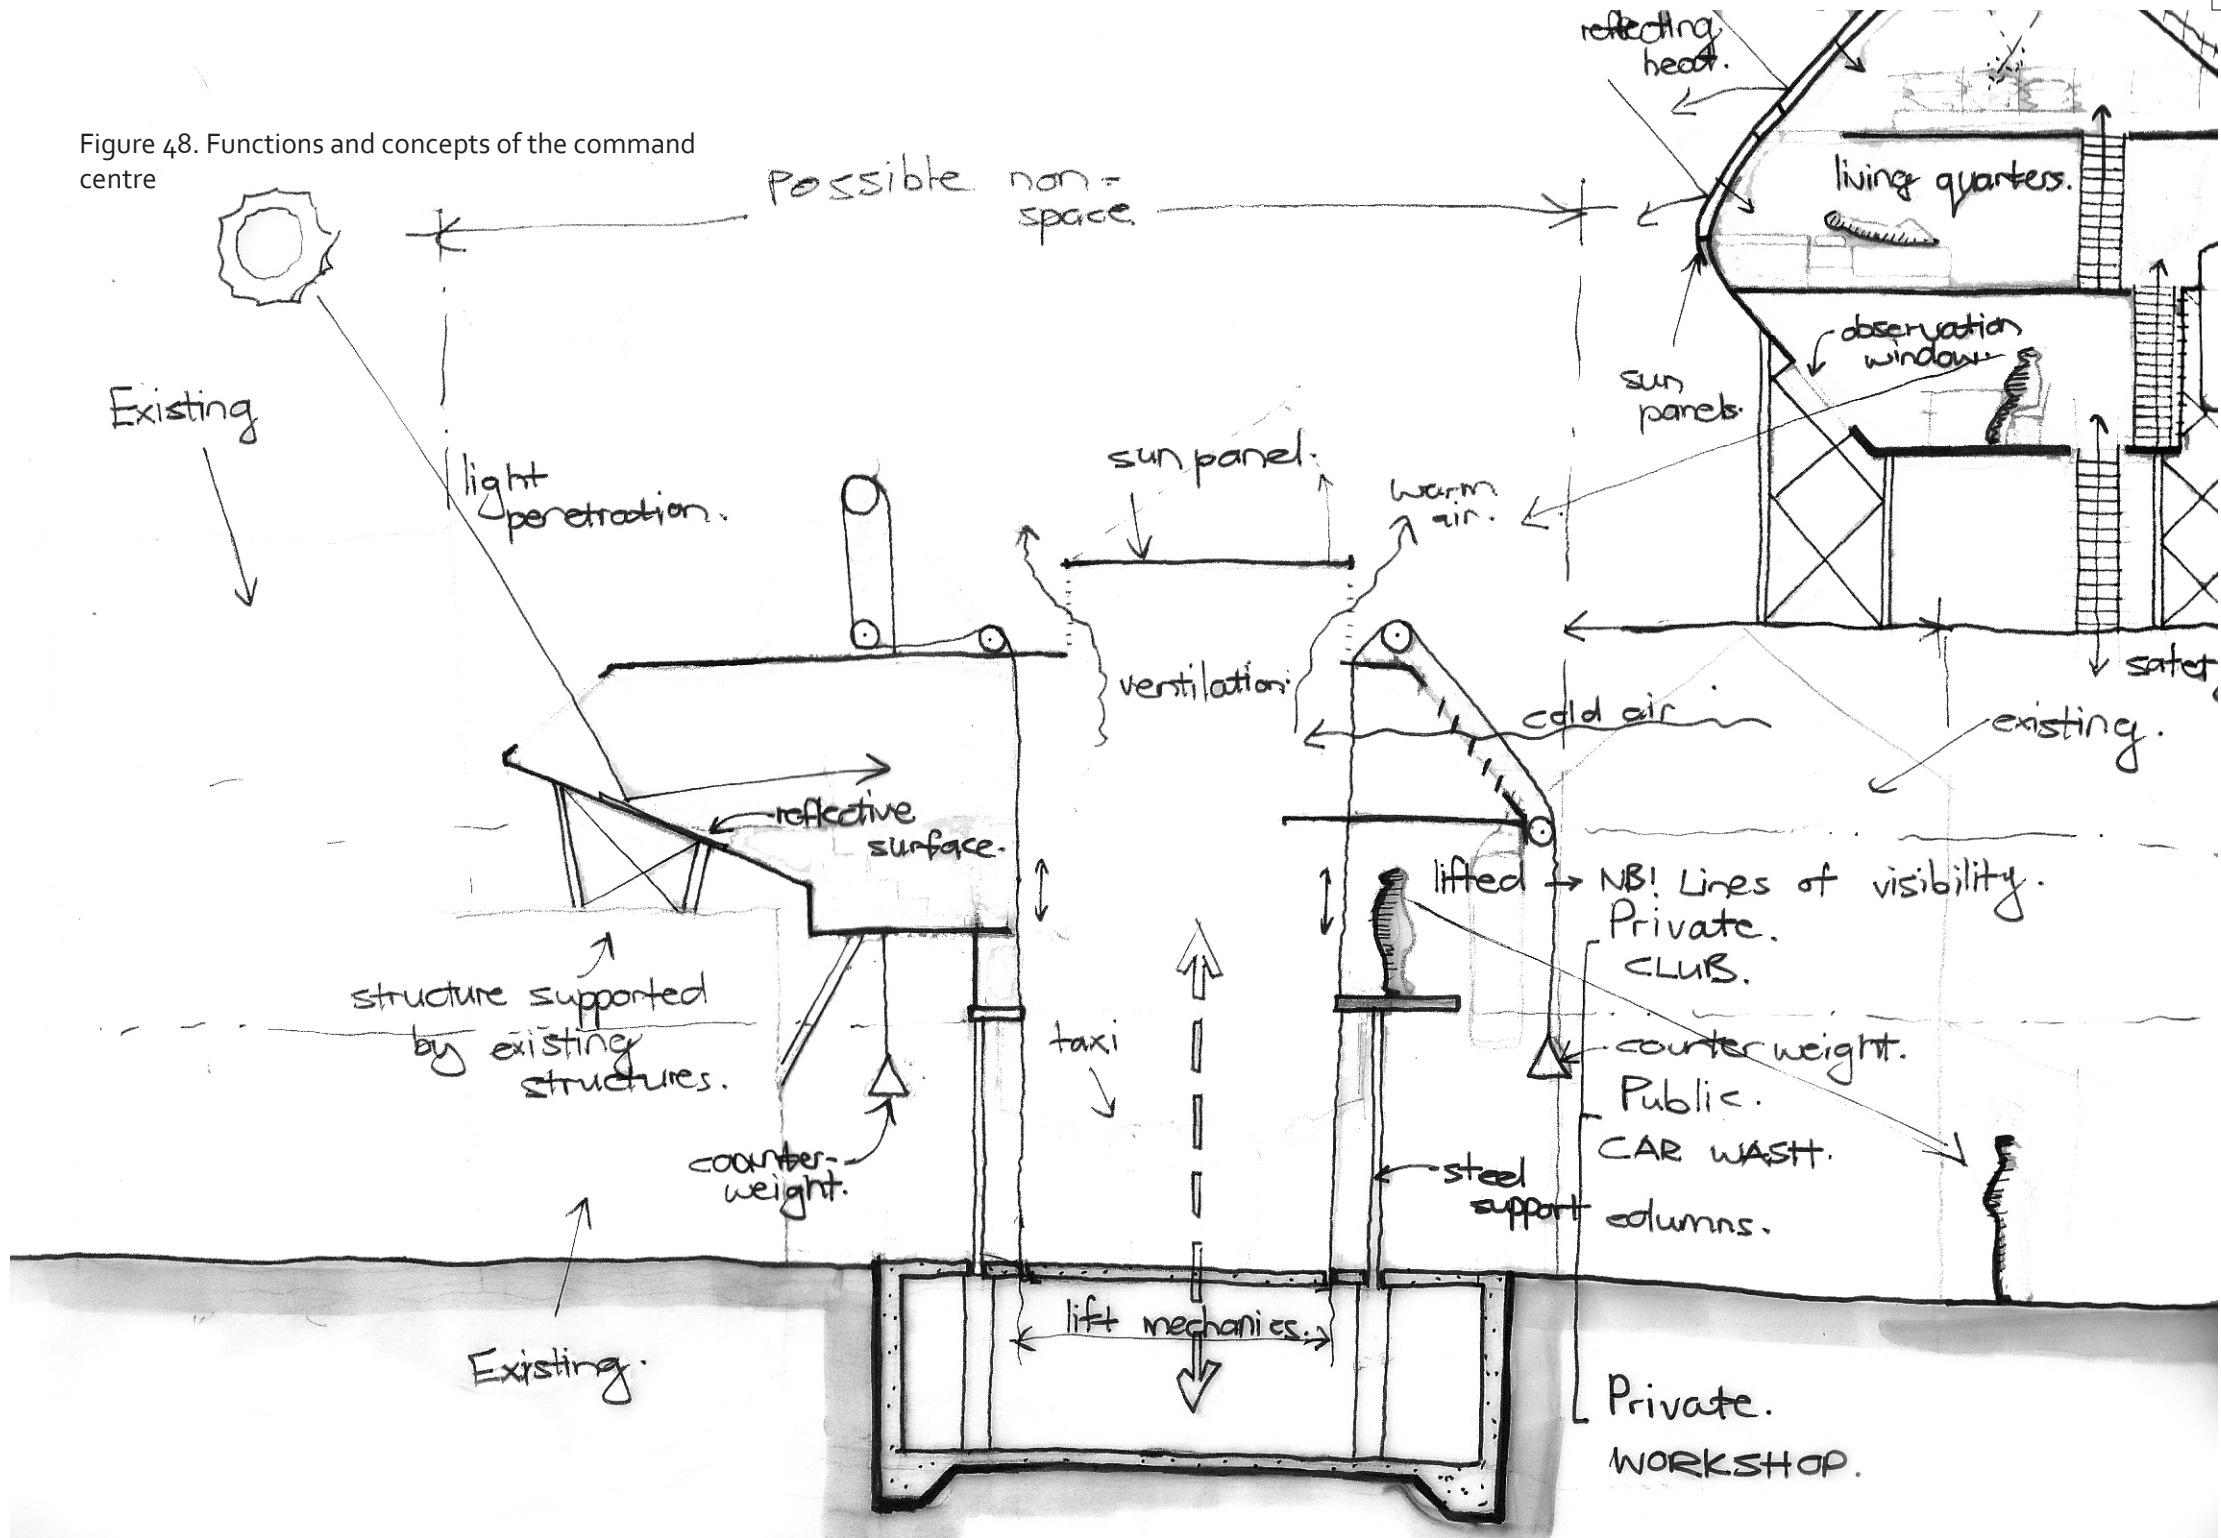 reflecting
heat.
Figure 48. Functions and concepts of the command
centre
possible non-
space.
living quarters.
observation
window.
sun
panels.
Existing
light
penetration.
sun panel.
warm
air.
ventilation.
cold air
existing.
reflective
surface.
lifted → NB! Lines of visibility.
Private.
CLUB.
structure supported
by existing
structures.
taxi
counter weight.
Public.
CAR WASH.
counter-
weight.
steel
support columns.
lift mechanics.
Existing.
Private.
WORKSHOP.